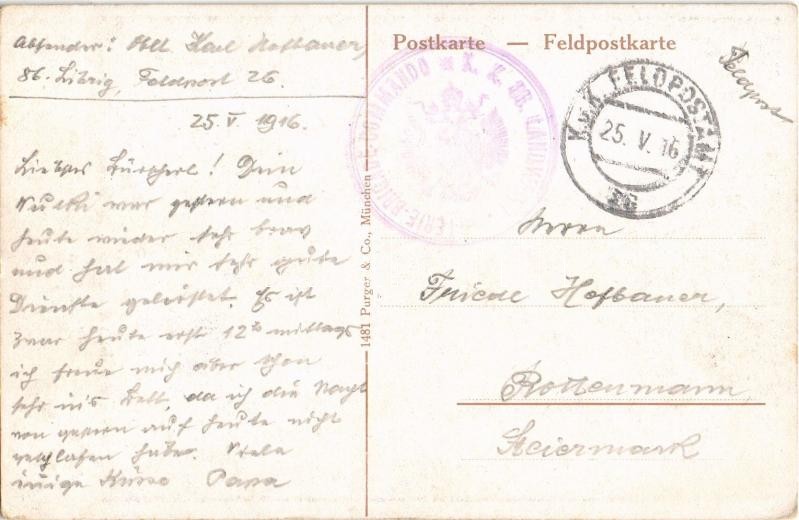 Absender: Oblt. Karl Hofbauer,
86. Librig, Feldpost 26.
25. V. 1916.
Liebes Bürscherl! Dein
Nutki war gestern und
heute wieder sehr brav
und hat mir sehr gute
Dienste geleistet. Es ist
zwar heute erst 12 h mittags
ich freue mich aber schon
sehr in's Bett, da ich die Nacht
von gestern auf heute nicht
geschlafen habe. Viele
innige Küsse Papa
1481 Purger & Co., München
Postkarte — Feldpostkarte
Feldpost
K.u.K. FELDPOSTAMT
25. V. 16
26
Herrn
Friedl Hofbauer,
Rottenmann
Steiermark